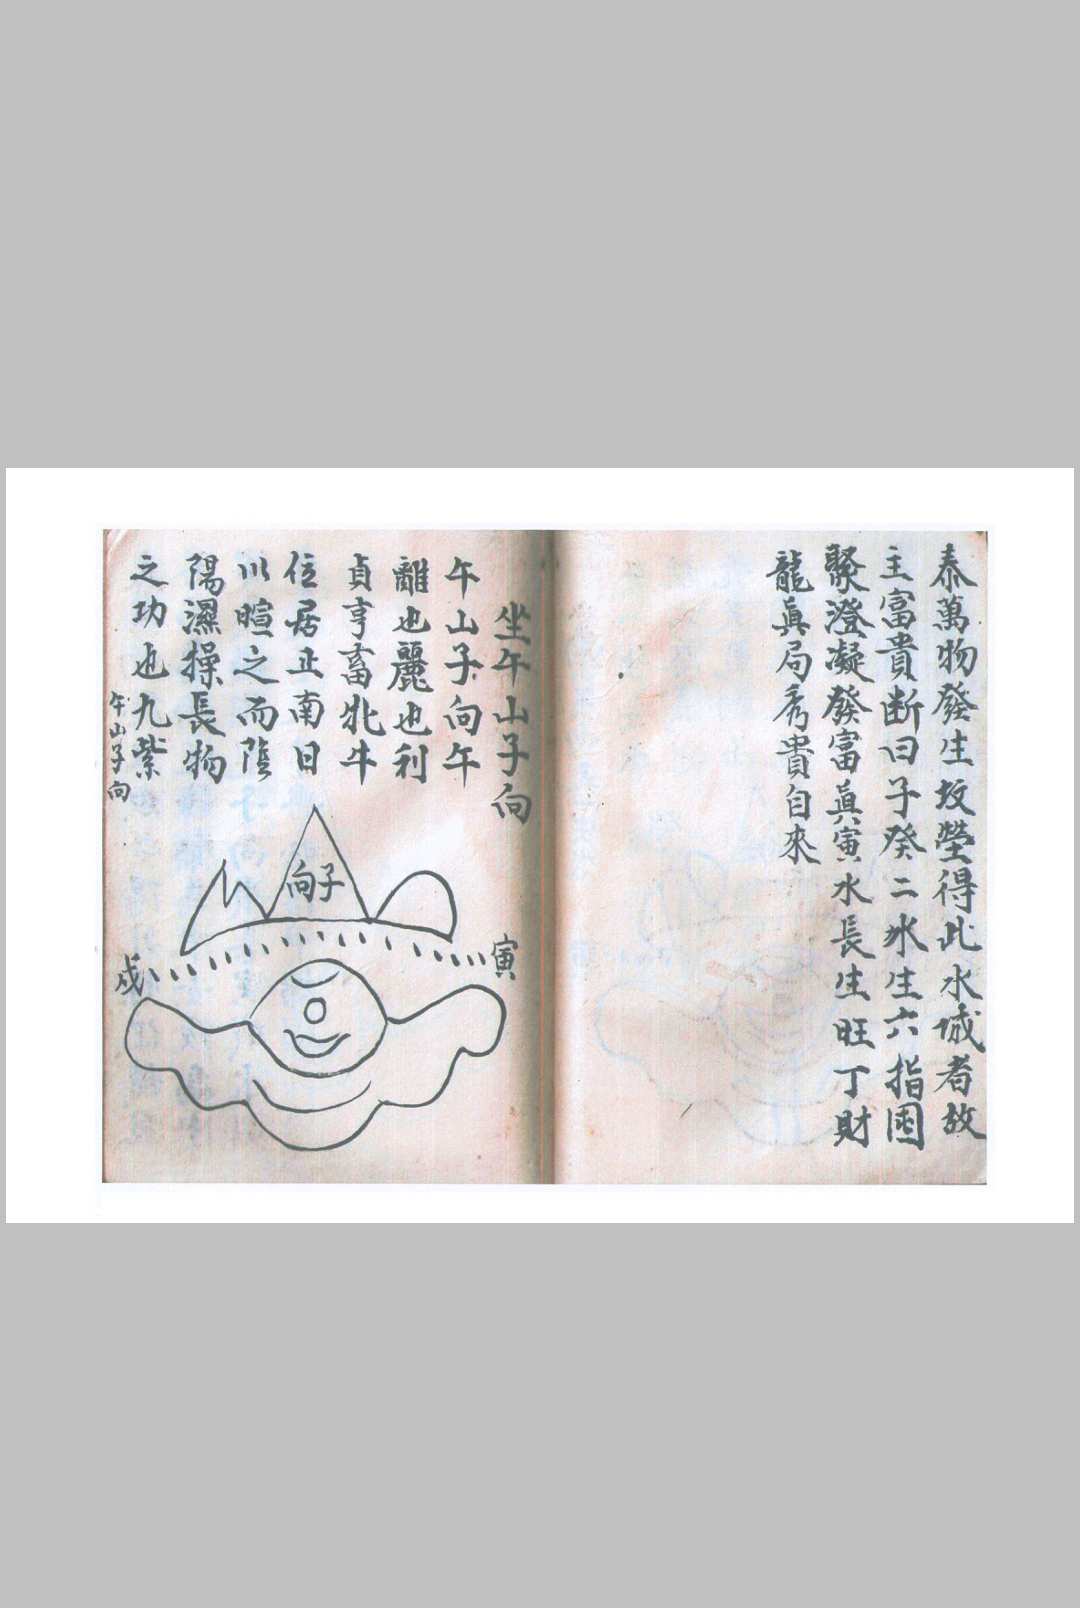 泰萬物發生坟塋得此水城者故
主富貴断曰子癸二水生六指困
聚澄凝發富真寅水長生旺丁財
龍真局秀貴自來
坐午山子向
午山子向午
離也麗也利
貞亨畜牝牛
位居正南日
以暄之而陰
陽濕操長物
之功也九紫
午山子向
子向
寅
戍